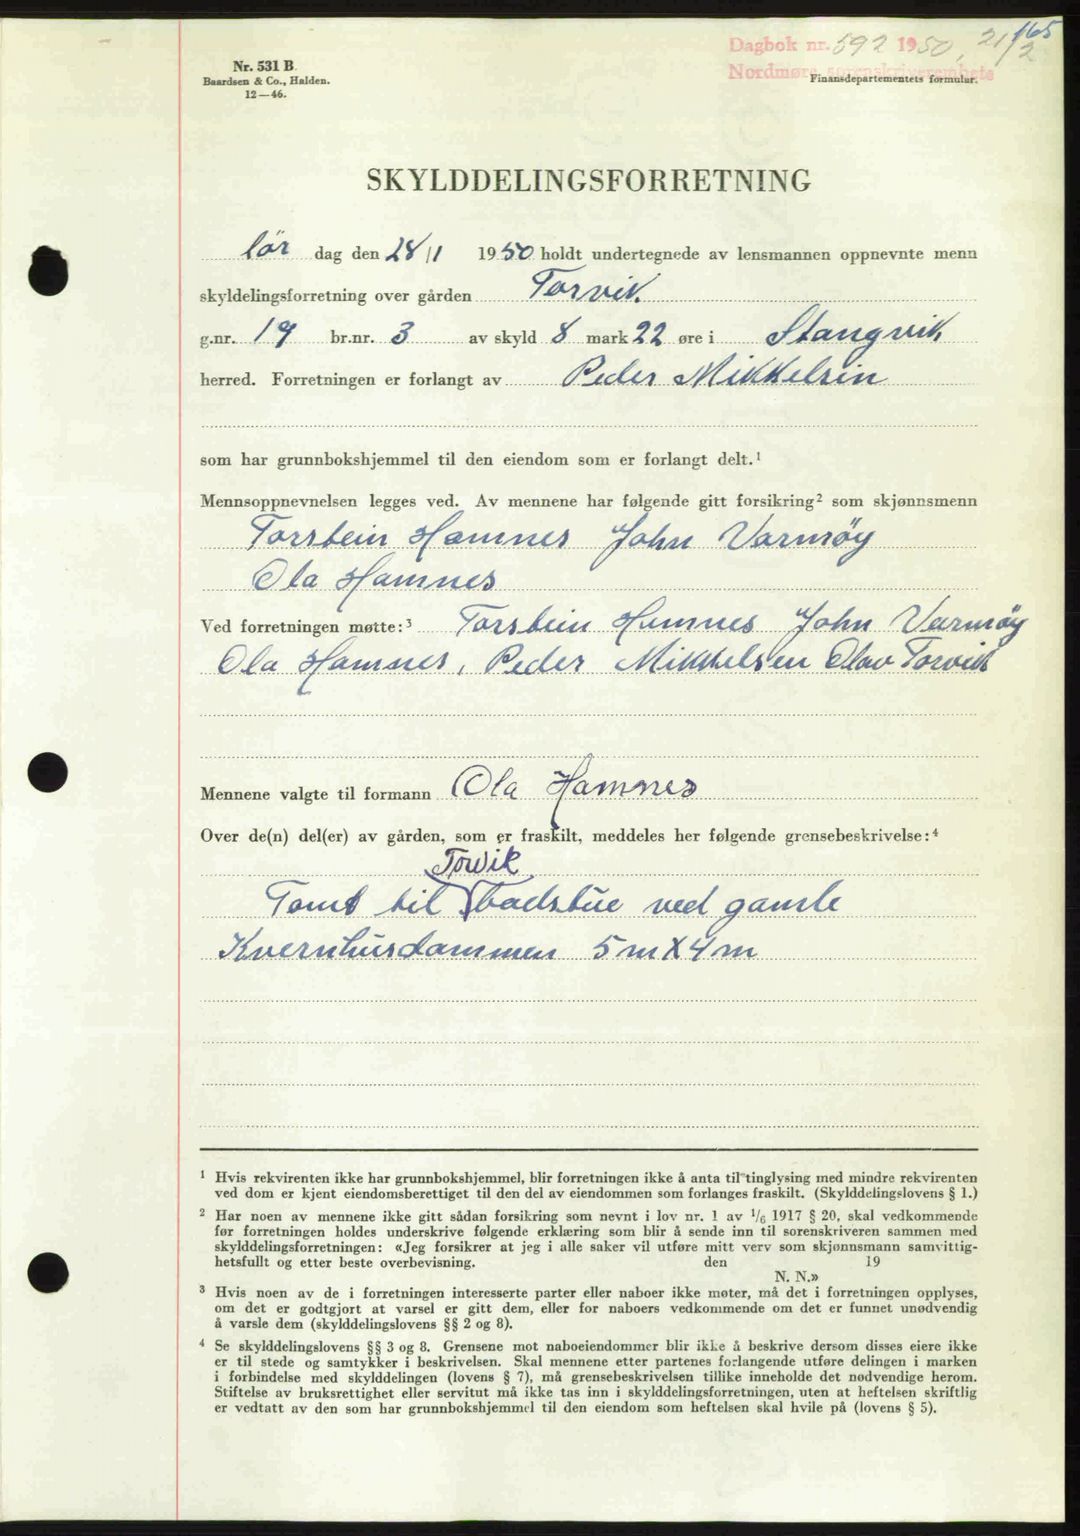 165
Dagbok nr. 592 1950, 21/2
Nordmøre sorenskriverembete
Nr. 531 B.
Baardsen & Co., Halden.
12—46.
Finansdepartementets formular.
SKYLDDELINGSFORRETNING
lör dag den 28/1 1950 holdt undertegnede av lensmannen oppnevnte menn
skyldelingsforretning over gården Torvik
g.nr. 19 br.nr. 3 av skyld 8 mark 22 øre i Stangvik
herred. Forretningen er forlangt av Peder Mikkelsen
som har grunnbokshjemmel til den eiendom som er forlangt delt.¹
Mennsoppnevnelsen legges ved. Av mennene har følgende gitt forsikring² som skjønnsmenn
Torstein Hamnes John Varmøy
Ola Hamnes
Ved forretningen møtte:³ Torstein Hamnes John Varmøy
Ola Hamnes, Peder Mikkelsen Olav Torvik
Mennene valgte til formann Ola Hamnes
Over de(n) del(er) av gården, som er fraskilt, meddeles her følgende grensebeskrivelse:⁴
Torvik
Tomt til badstue ved gamle
Kvernhusdammen 5 m X 4 m
¹ Hvis rekvirenten ikke har grunnbokshjemmel, blir forretningen ikke å anta til tinglysing med mindre rekvirenten
ved dom er kjent eiendomsberettiget til den del av eiendommen som forlanges fraskilt. (Skylddelingslovens § 1.)
² Har noen av mennene ikke gitt sådan forsikring som nevnt i lov nr. 1 av 1/6 1917 § 20, skal vedkommende
før forretningen holdes underskrive følgende erklæring som blir å sende inn til sorenskriveren sammen med
skylddelingsforretningen: «Jeg forsikrer at jeg i alle saker vil utføre mitt verv som skjønnsmann samvittig-
hetsfullt og etter beste overbevisning. den 19
N. N.»
³ Hvis noen av de i forretningen interesserte parter eller naboer ikke møter, må det i forretningen opplyses,
om det er godtgjort at varsel er gitt dem, eller for naboers vedkommende om det er funnet unødvendig
å varsle dem (skylddelingslovens §§ 2 og 8).
⁴ Se skylddelingslovens §§ 3 og 8. Grensene mot naboeiendommer blir ikke å beskrive dersom disses eiere ikke
er til stede og samtykker i beskrivelsen. Skal mennene etter partenes forlangende utføre delingen i marken
i forbindelse med skylddelingen (lovens § 7), må grensebeskrivelsen tillike inneholde det nødvendige herom.
Stiftelse av bruksrettighet eller servitut må ikke tas inn i skylddelingsforretningen, uten at heftelsen skriftlig
er vedtatt av den som har grunnbokshjemmel til den eiendom som heftelsen skal hvile på (lovens § 5).